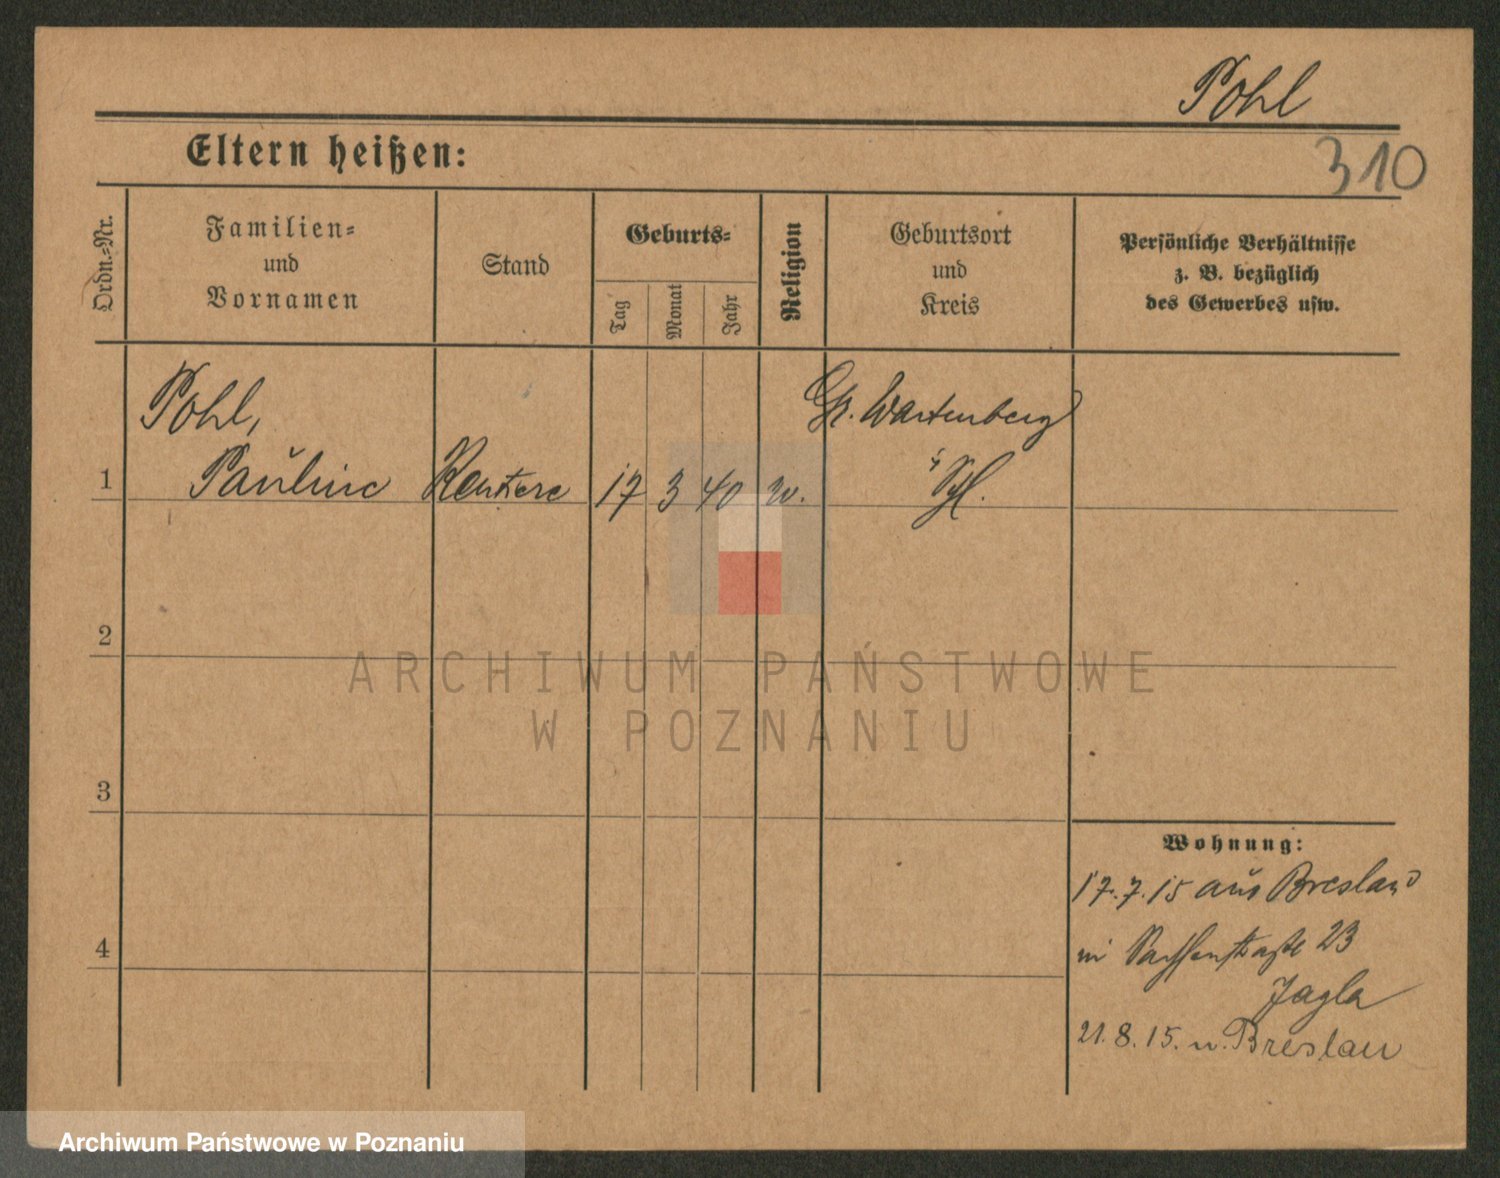 Pohl
Eltern heißen:
310
Ordn.-Nr.
Familien-
und
Vornamen
Stand
Geburts-
Tag
Monat
Jahr
Religion
Geburtsort
und
Kreis
Persönliche Verhältnisse
z. B. bezüglich
des Gewerbes usw.
Pohl,
1 Pauline
17 3 40
Gr. Wartenberg
2
3
4
Wohnung:
17.7.15 aus Breslau
Sachsenstraße 23
Jagla
21.8.15. n. Breslau
ARCHIWUM PAŃSTWOWE
W POZNANIU
Archiwum Państwowe w Poznaniu